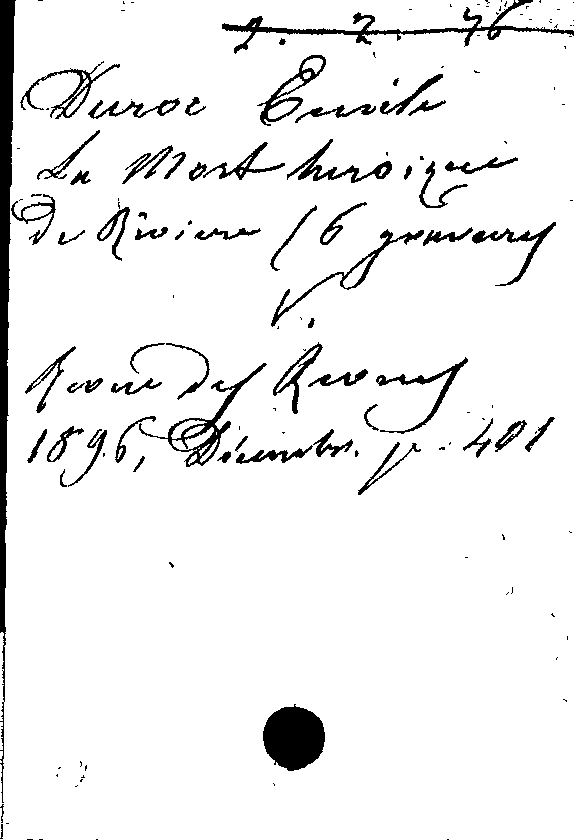 2. 2. 76
Duroc Emile
La Mort héroique
de Rivière (6 gravures
V.
Revue des Revues
1896, Décembre. p. 401